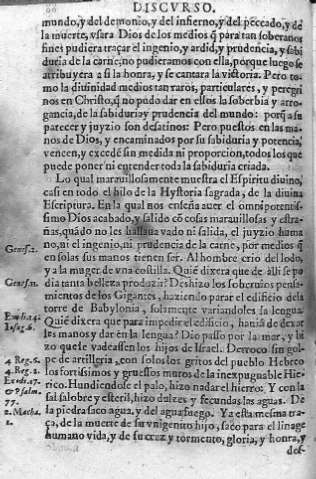 DISCVRSO.
mundo, y del demonio, y del infierno, y del peccado, y de
la muerte, vsara Dios de los medios q̃ para tan soberanos
fines pudiera traçar el ingenio, y ardid, y prudencia, y sabi
duria de la carne, no pudieramos con ella, porque luego se
atribuyera a si la honra, y se cantara la victoria. Pero to-
mo la diuinidad medios tan raros, particulares, y peregri
nos en Christo, q̃ no pudo dar en ellos la soberbia y arro-
gancia, de la sabiduria y prudencia del mundo: porq̃ a su
parecer y juyzio son desatinos: Pero puestos en las ma-
nos de Dios, y encaminados por su sabiduria y potencia,
vencen, y exceden sin medida ni proporcion, todos los que
puede poner ni entender toda la sabiduria criada.
Lo qual marauillosamente enseña el Espiritu diuino,
casi en todo el hilo de la Hystoria sagrada, de la diuina
Escriptura. En la qual nos enseña auer el omnipotenti-
simo Dios acabado, y salido cõ cosas marauillosas y estra-
ñas, quãdo no les hallaua vado ni salida, el juyzio huma
no, ni el ingenio, ni prudencia de la carne, por medios q̃
Genes. 2. en solas sus manos tienen ser. Al hombre crio del lodo,
y a la muger de vna costilla. Quiẽ dixera que de alli se po
Genes. 11. dia tanta belleza produzir? Deshizo los soberuios pensa-
mientos de los Gigantes, haziendo parar el edificio de la
torre de Babylonia, solamente variandoles la lengua.
Exod. 14. Quiẽ dixera que para impedir el edificio, hauia de dexar
Iosue. 6. las manos y dar en la lengua? Dio passo por la mar, y hi
zo que le vadeassen los hijos de Israel. Derroco sin gol-
4 Reg. 6. pe de artilleria, con solos los gritos del pueblo Hebreo
4 Reg. 2. los fortissimos y gruessos muros de la inexpugnable Hie-
Exod. 17. rico. Hundiendose el palo, hizo nadar el hierro: Y con la
& Psalm. sal salobre y esteril, hizo dulces y fecundas las aguas. De
77. la piedra saco agua, y del agua fuego. Y a esta mesma tra-
2. Macha. ça, de la muerte de su vnigenito hijo, saco para el linage
1. humano vida, y de su cruz y tormento, gloria, y honra, y
des-